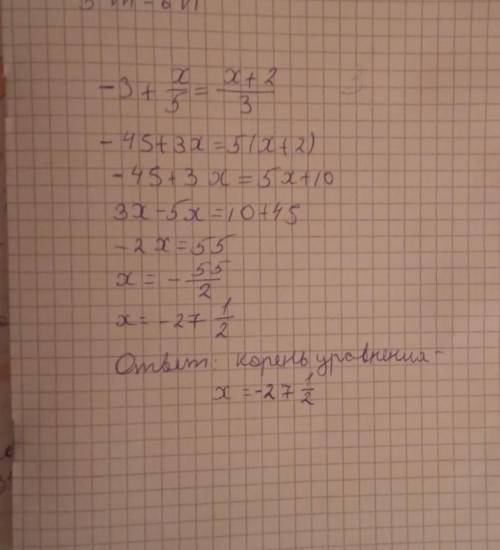 -3 + x/5 = x+2/3
-45+3x=5(x+2)
-45+3x=5x+10
3x-5x=10+45
-2x=55
x = -55/2
x=-27 1/2
Ответ: корень уравнения -
x=-27 1/2